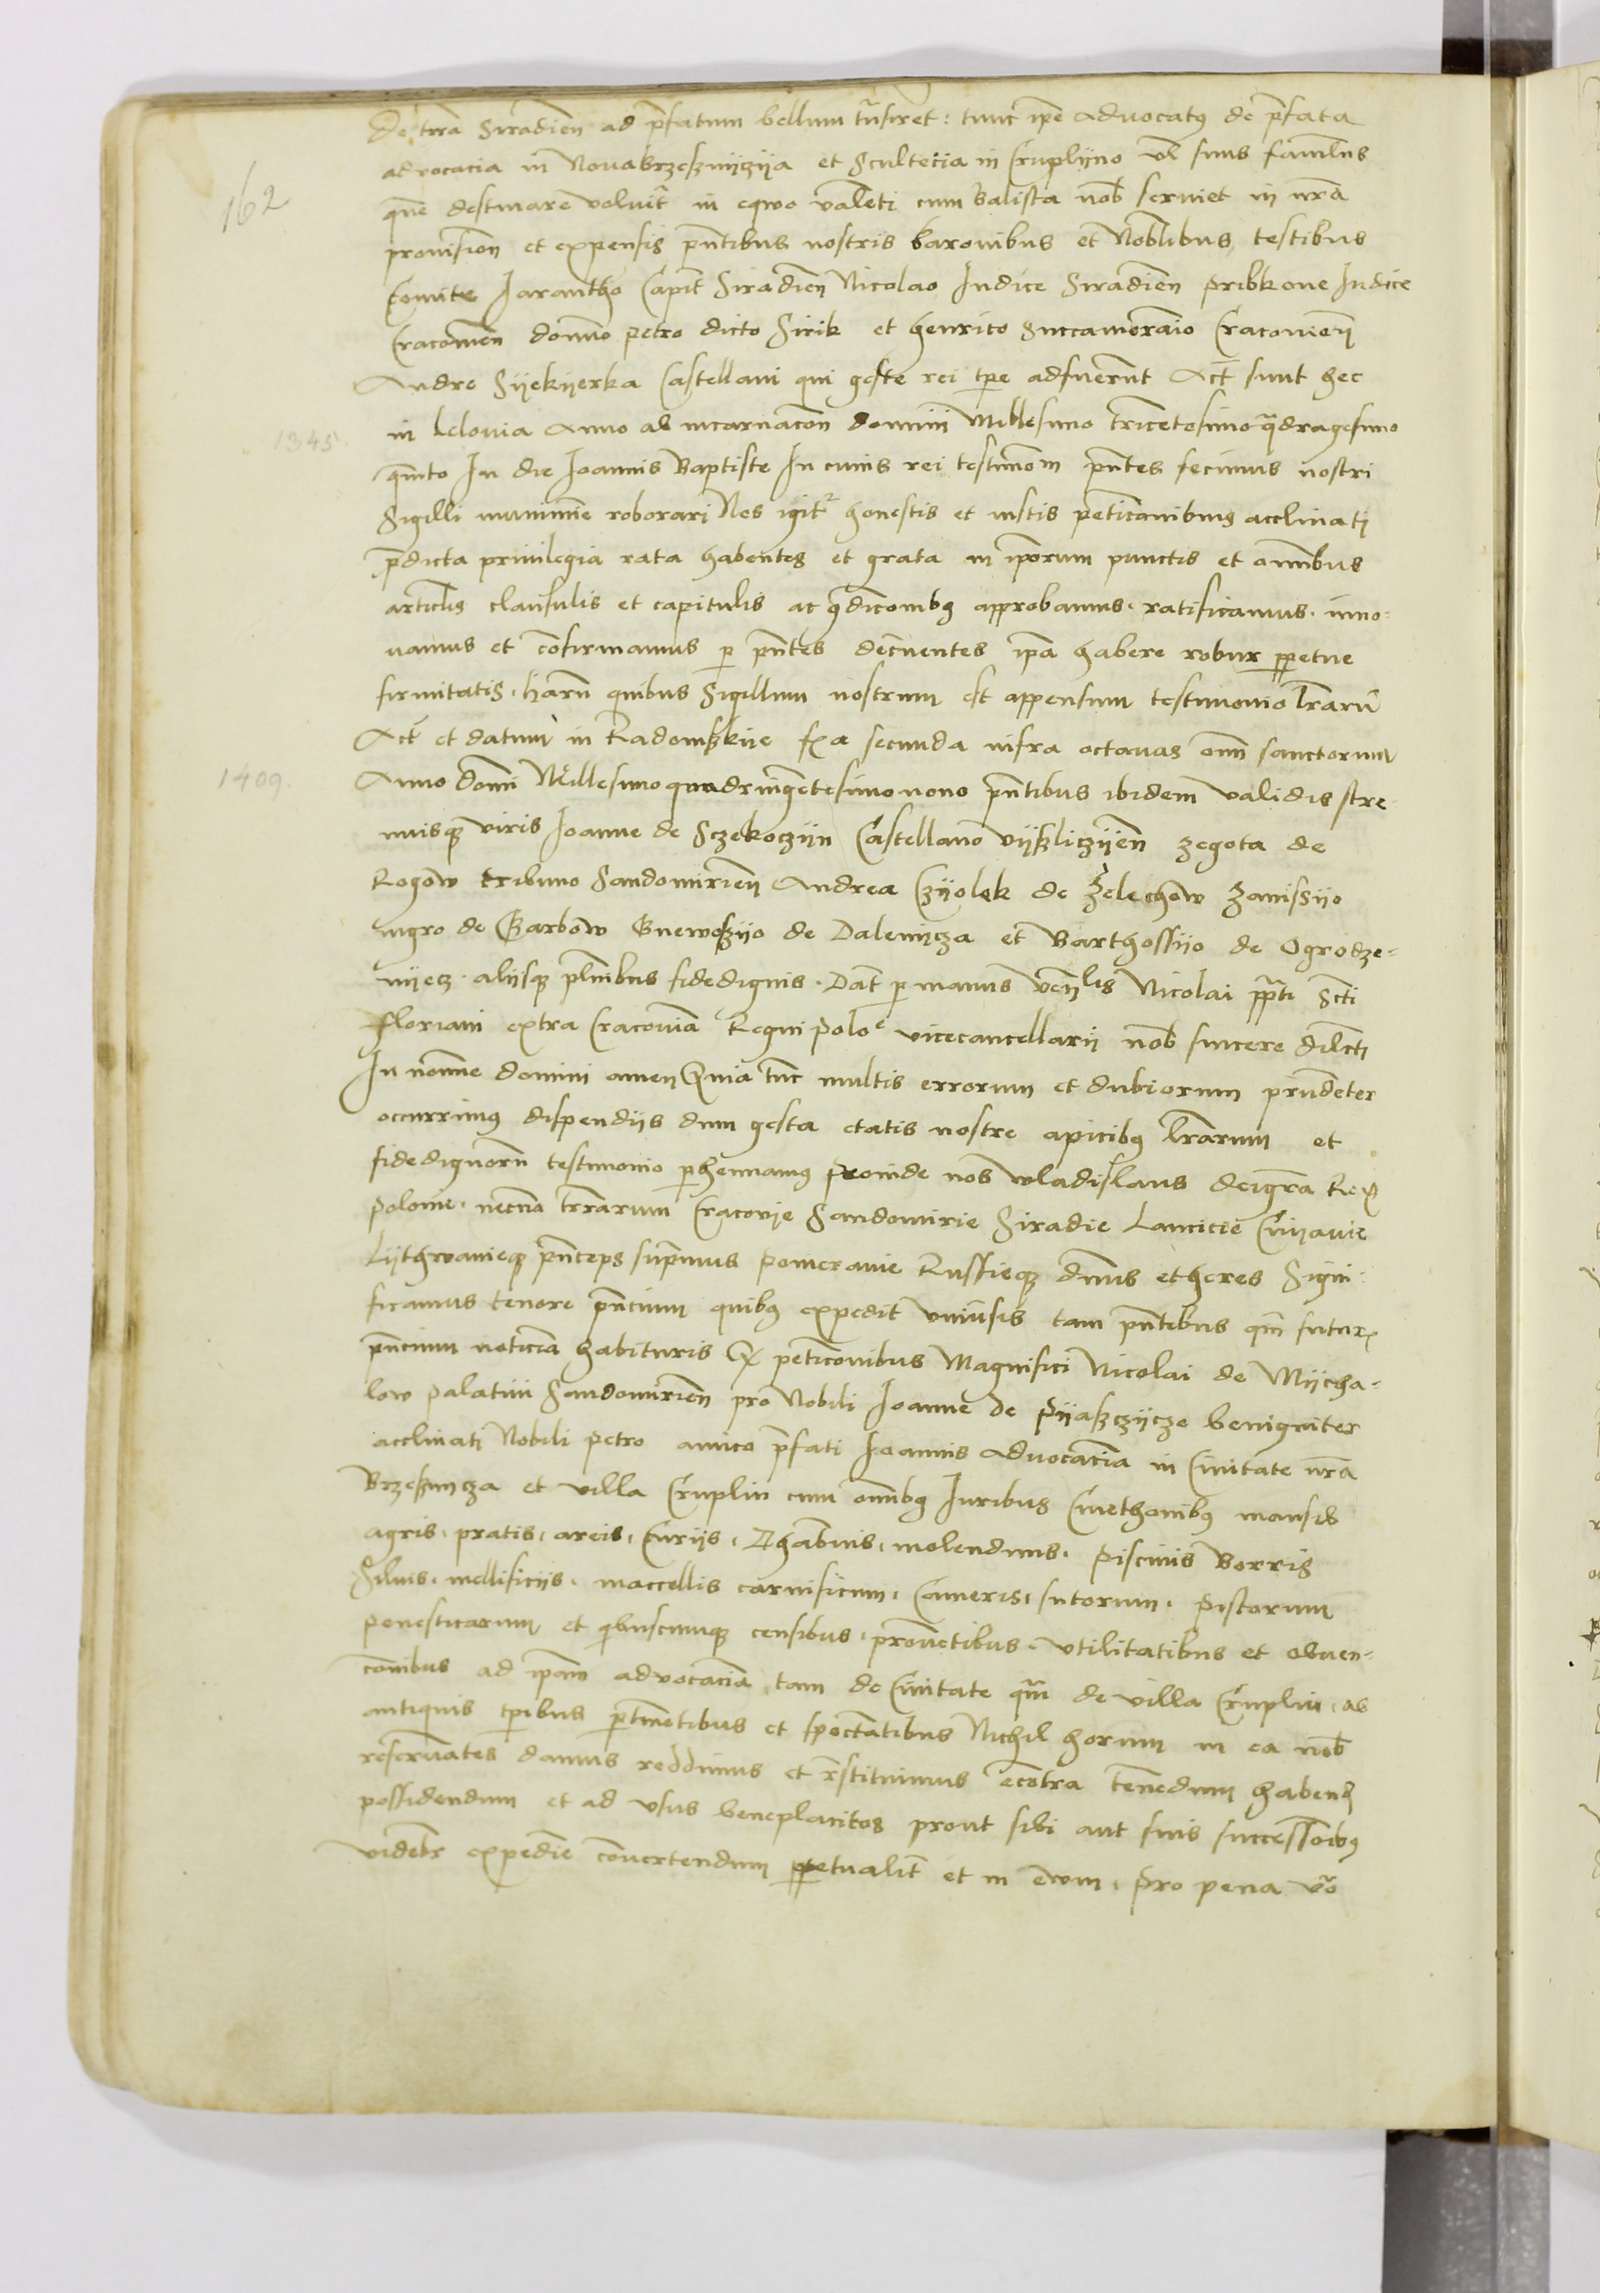 De trra Siradien ad pfatum bellum tnsiret: tunc ipe Advocatus de pfata
162
advocacia in Novabrzesznijczija et Scultecia in Cruplijno vl suus famulus
quem destinare voluit in equo valeti cum Balista nob serviet in nra
provision et expensis pntibus nostris baronibus et Noblibus testibus
Comite Jarantho Capit Siradien Nicolao Judice Siradien pribkone Judice
Cracovien domino petro dicto Sirik et henrico Succameraio Cracovien
Andre Sijekijerka Castellani qui geste rei tpe adfuerunt Act sunt hec
in Lelovia Anno ab incarnacon domini Millesimo tricentesimo qdragesimo
1345.
quinto In die Joannis Baptiste In cuius rei testimom pntes fecimus nostri
Sigilli munimine roborari Nos igitr honestis et iustis peticonibus acclinati
pdicta privilegia rata habentes et grata in ipsorum punctis et omnibus
articlis clausulis et capitulis ac qdicombus approbamus. ratificamus. inno-
vamus et cofirmamus p pntes decnentes ipa habere robur ppetue
firmitatis. harn quibus Sigillum nostrum est appensum testimonio lrarum
Act et datum in Radomskije fia secunda infra octavas omn sanctorum
Anno domi Millesimo quadringetesimo nono pntibus ibidem validis stre-
1409.
nuisque viris Joanne de Sczekoczijn Castellano vijszliczijen zegota de
Rogow tribuno Sandomirien Andrea Czijolek de Zelechow Zavissijo
nigro de Garbow Gnewoszijo de Dalewijcza et Barthossijo de Ogrodze-
nijecz. alijsque plribus fidedignis. Dat p manus venlis Nicolai ppti Scti
Floriani extra Cracoviam Regni polo vicecancellarij nob sincere dilcti
In nomine domini amen Quia tunc multis errorum et dubiorum prudeter
occurrimus dispendijs dum gesta etatis nostre apicibus lrarum et
fidedignorum testimonio phennamus proinde nos wladislaus dei gra Rex
polonie. necno trrarum Cracovije Sandomirie Siradie Lancicie Cuijavie
Lijthwanieque pnceps supmus pomeranie Russieque dnus et heres Signi-
ficamus tenore pncium quibus expedit univsis tam pntibus qm futuris
pncium noticia habituris Q peticonibus Magnifici Nicolai de Mijcha-
low palatini Sandomirien pro Nobili Joanne de Pijasczijcze benigniter
acclinati Nobili petro amico pfati Joannis Advocaciam in Civitate nra
Brzesznicza et villa Cruplin cum omnibus Juribus Cmethonibus mansis
agris. pratis. areis. Curijs. Thabnis. molendinis. piscinis Borris
Silvis. mellificijs. maccellis carnificum. Cameris. sutorum. pistorum
penesticarum et qibuscunque censibus. provetibus. utilitatibus et obven-
conibus ad ipam advocacia tam de Civitate qm de villa Cruplin. ab
antiquis tpibus ptinetibus et spectatibus Nichil horum in ea nob
reservates damus reddimus et rstituimus ecotra tenedum habend
possidendum et ad usus beneplacitos prout sibi aut suis successoribus
videbr expedire convertendum ppetualit et in evum. Pro pena vo